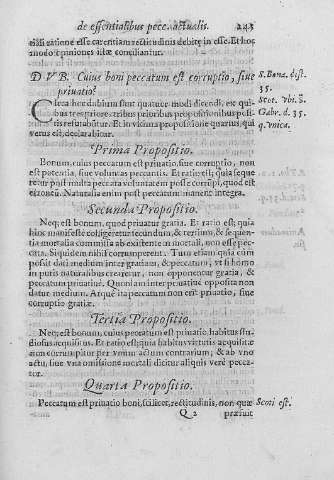 de essentialibus pecc. actualis. 243
cũdũ ratione esse carentiam rectitudinis debitę in esse. Et hoc
modo opiniones istæ conciliantur.
D V B. Cuius boni peccatum est corruptio, siue
priuatio?
S. Bona. dist.
35.
Scot. vbi. s.
Gabr. d. 35.
q. vnica.
Circa hoc dubium sunt quatuor modi dicendi, ex qui-
bus tres priores tribus prioribus propositionibus posi-
tis refutabuntur. Et in vltima propositione quartus, qui
verus est, declarabitur.
Prima Propositio.
Bonum, cuius peccatum est priuatio, siue corruptio, non
est potentia, siue voluntas peccantis. Et ratio est; quia seque
retur post multa peccata voluntatem posse corrupi, quod est
erroneũ. Naturalia enim post peccatum manent integra.
Secunda Propositio.
Neq; est bonum, quod priuatur gratia. Et ratio est; quia
hinc manifeste colligeretur secundum, & tertium, & sequen-
tia mortalia commissa ab existente in mortali, non esse pec-
cata. Siquidem nihil corrumperent. Tum etiam quia cum
possit dari medium inter gratiam, & peccatum, vt si homo
in puris naturalibus crearetur, non opponentur gratia, &
peccatum priuatiuè. Quoniam inter priuatiuè opposita non
datur medium. Atque ita peccatum non est priuatio, siue
corruptio gratiæ.
Tertia Propositio.
Neq; est bonum, cuius peccatum est priuatio habitus stu-
diosus acquisitus. Et ratio est; quia habitus virtutis acquisitæ
non corrumpitur per vnum actum contrarium; & ab vno
actu, siue vna omissione mortali dicitur aliquis verè pecca-
tor.
Quarta Propositio.
Peccatum est priuatio boni, scilicet, rectitudinis, non quæ Scoti est.
Q 2 præfuit